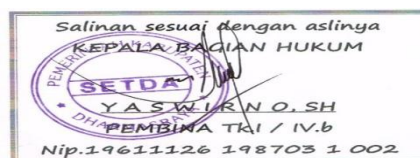 Salinan sesuai dengan aslinya
KEPALA BAGIAN HUKUM
SETDA
Y A S W I R N O. SH
PEMBINA TkI / IV.b
Nip.19611126 198703 1 002